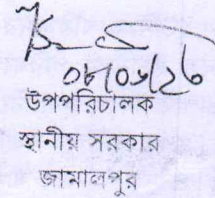 ০৮/০৬/২৬
উপপরিচালক
স্থানীয় সরকার
জামালপুর